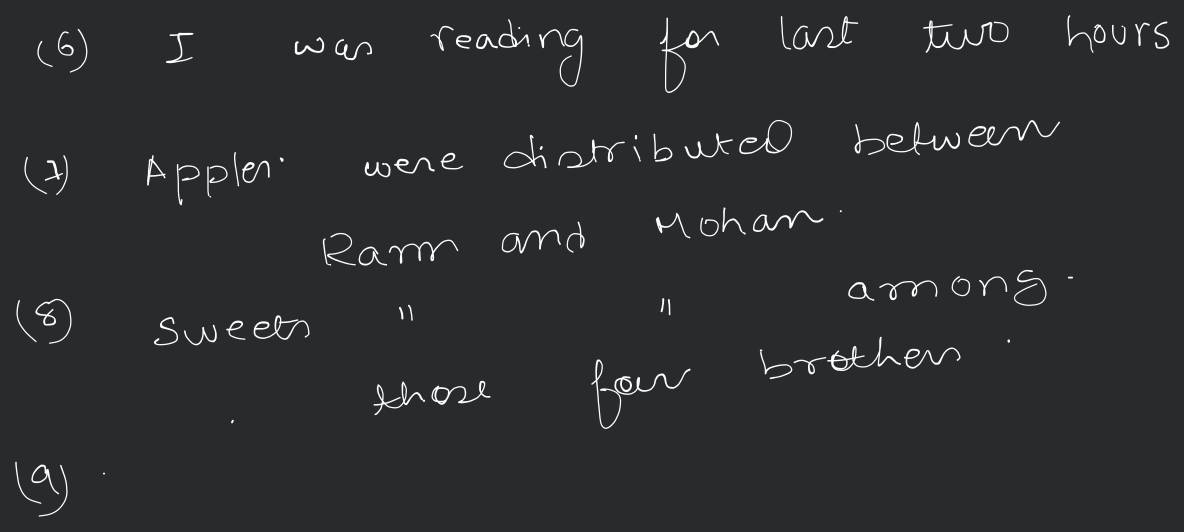 (6) I was reading for last two hours
(7) Apples were distributed between
Ram and Mohan.
(8) Sweets " " among
those four brothers.
(9)